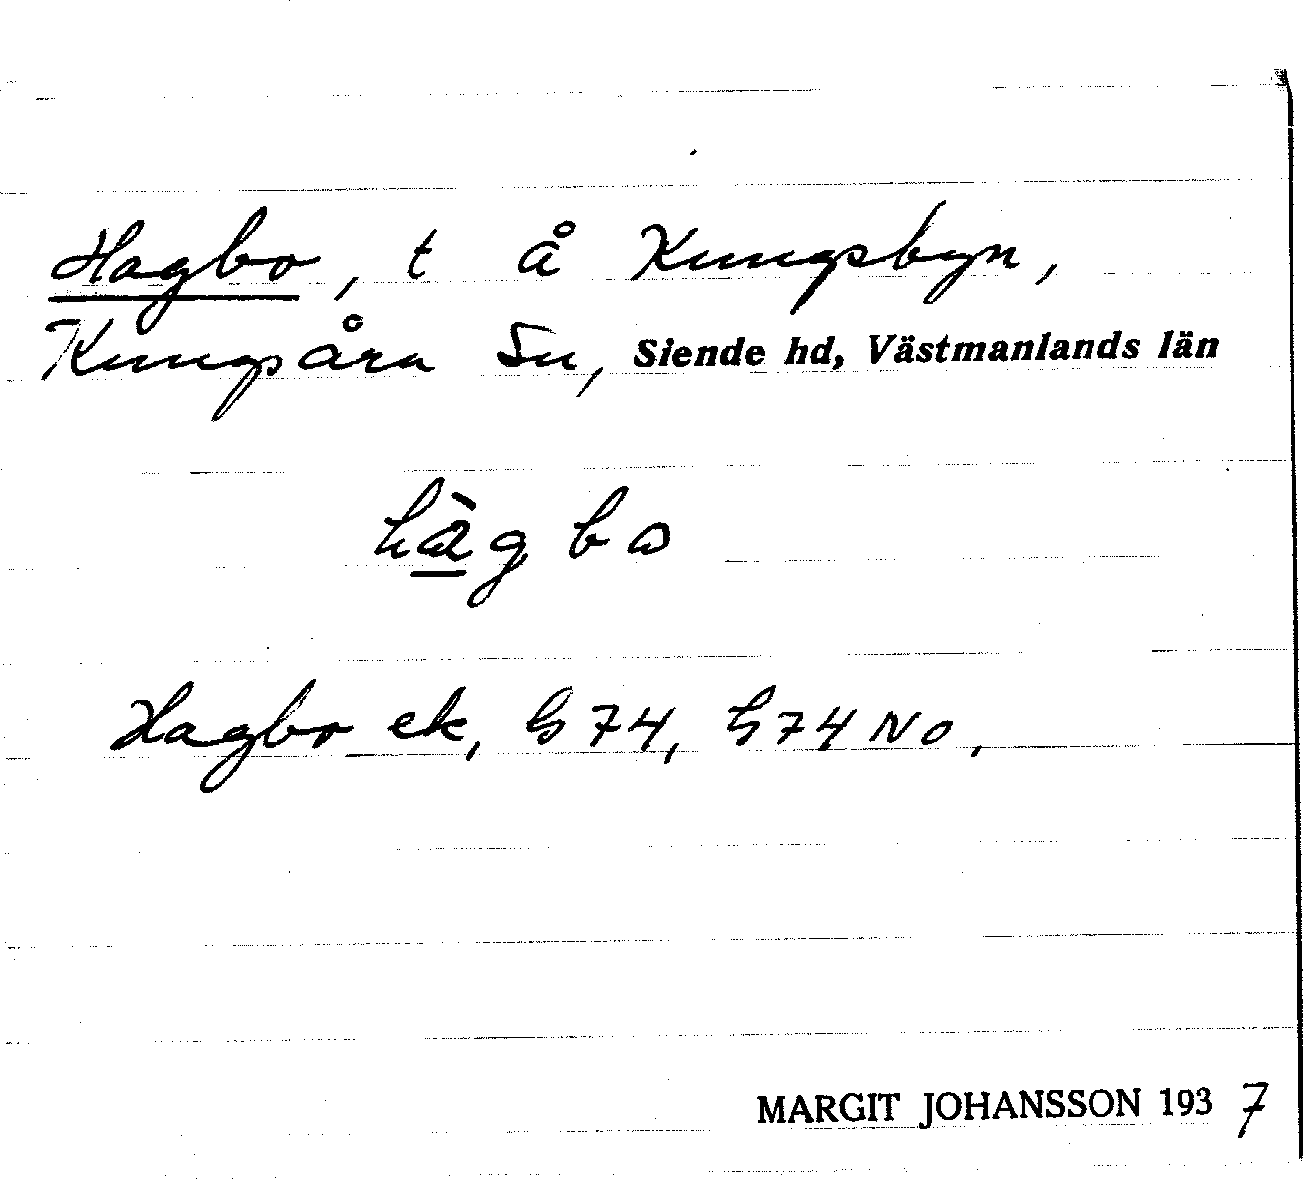 Hagbo, t å Kungsbyn,
Kungsåra Sn, Siende hd, Västmanlands län
hàg bo
Hagbo ek, G 74, G 74 NO,
MARGIT JOHANSSON 193 7